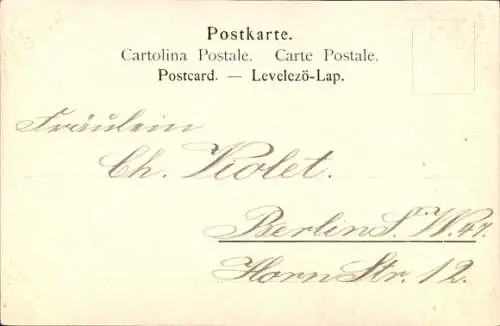 Postkarte.
Cartolina Postale. Carte Postale.
Postcard. — Levelezö-Lap.
Fräulein
Ch. Violet.
Berlin S. W. 47.
Horn Str. 12.